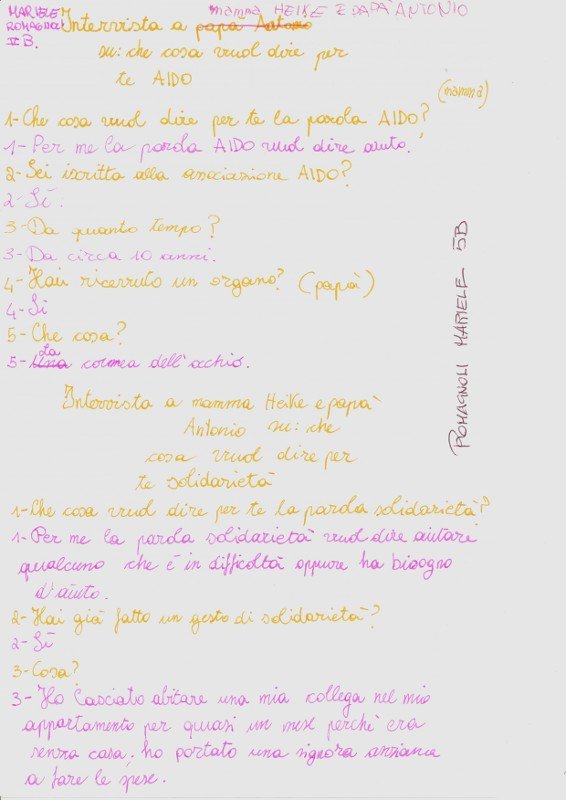 MARIELE
ROMAGNOLI
VB.
mamma HEIKE E PAPA' ANTONIO
Intervista a papa Antonio
su: che cosa vuol dire per
te AIDO
(mamma)
1-Che cosa vuol dire per te la parola AIDO?
1-Per me la parola AIDO vuol dire aiuto.
2-Sei iscritta alla associazione AIDO?
2-Sì.
3-Da quanto tempo?
3-Da circa 10 anni.
4-Hai ricevuto un organo? (papà)
4-Sì
5-Che cosa?
5-Una La cornea dell'occhio.
Intervista a mamma Heike e papà
Antonio su: che
cosa vuol dire per
te solidarietà
1-Che cosa vuol dire per te la parola solidarietà?
1-Per me la parola solidarietà vuol dire aiutare
qualcuno che è in difficoltà oppure ha bisogno
d'aiuto.
2-Hai già fatto un gesto di solidarietà?
2-Sì
3-Cosa?
3-Ho lasciato abitare una mia collega nel mio
appartamento per quasi un mese perchè era
senza casa, ho portato una signora anziana
a fare le spese.
ROMAGNOLI MARIELE 5B